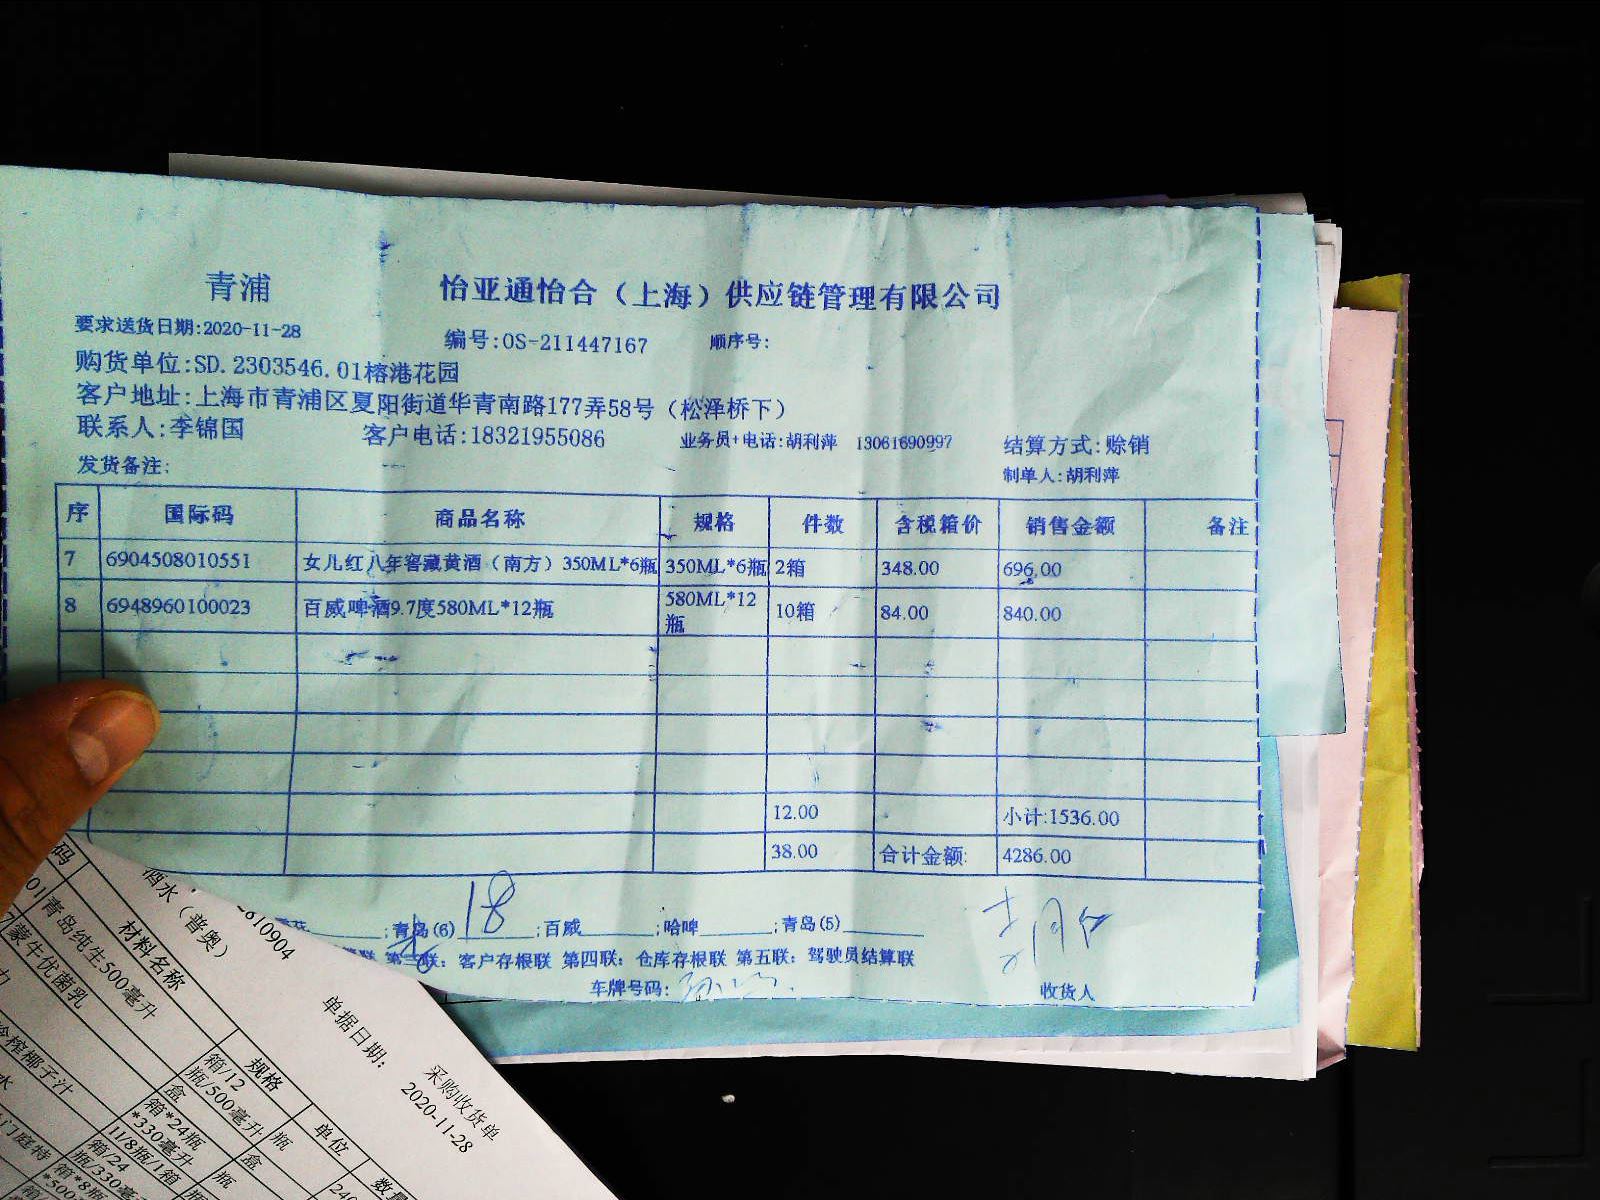 青浦
怡亚通怡合（上海）供应链管理有限公司
要求送货日期:2020-11-28
编号:OS-211447167 顺序号:
购货单位:SD.2303546.01榕港花园
客户地址:上海市青浦区夏阳街道华青南路177弄58号（松泽桥下）
联系人:李锦国 客户电话:18321955086 业务员+电话:胡利萍 13061690997 结算方式:赊销
发货备注: 制单人:胡利萍
序 国际码 商品名称 规格 件数 含税箱价 销售金额 备注
7 6904508010551 女儿红八年窖藏黄酒（南方）350ML*6瓶 350ML*6瓶 2箱 348.00 696.00
8 6948960100023 百威啤酒9.7度580ML*12瓶 580ML*12瓶 10箱 84.00 840.00
12.00 小计:1536.00
38.00 合计金额: 4286.00
;青岛(6) 18 ;百威 ;哈啤 ;青岛(5)
联: 客户存根联 第四联: 仓库存根联 第五联: 驾驶员结算联
车牌号码: 收货人
采购收货单
单据日期: 2020-11-28
610904
酒水（普奥）
码 材料名称 规格 单位 数量
01 青岛纯生500毫升 箱/12瓶/500毫升 瓶
蒙牛优菌乳 盒 盒
榨椰子汁 箱*24瓶*330毫升 瓶
水
门庭特